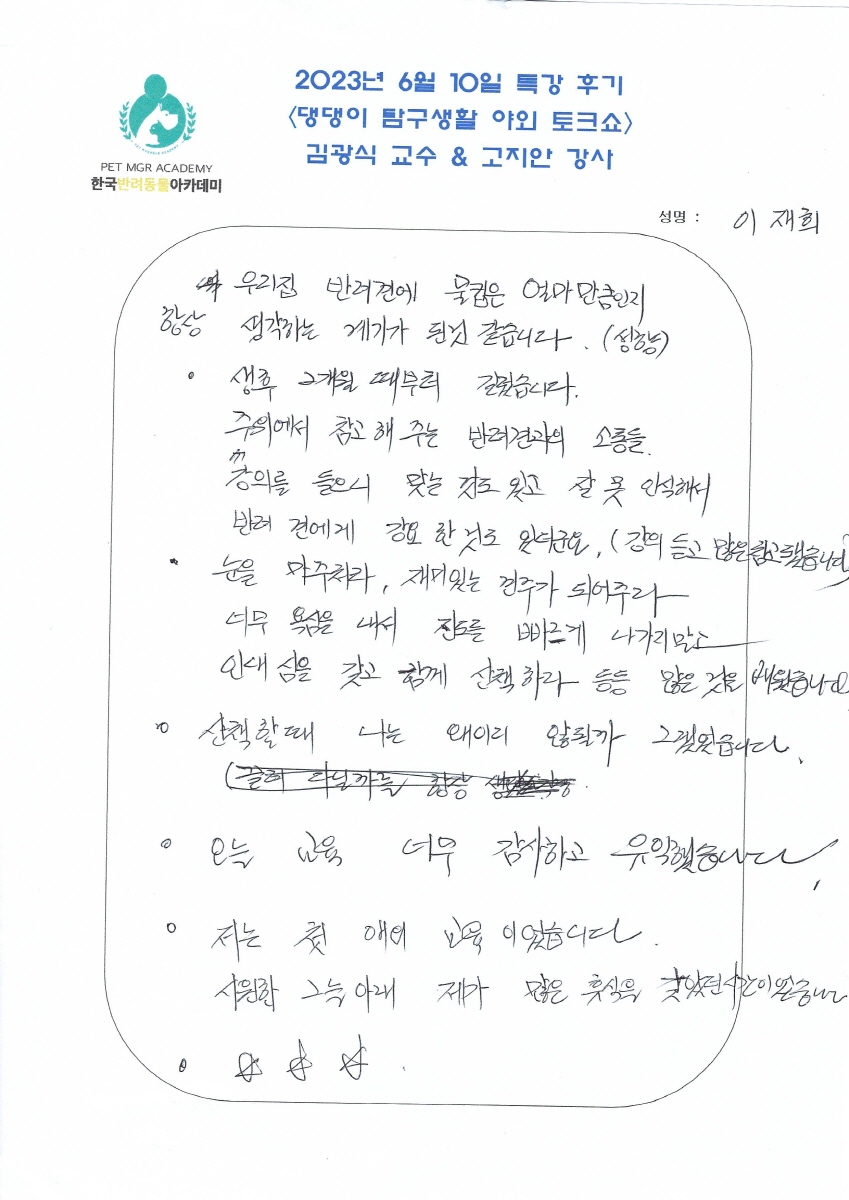 2023년 6월 10일 특강 후기
<댕댕이 탐구생활 야외 토크쇼>
김광식 교수 & 고지안 강사
PET MGR ACADEMY
한국반려동물아카데미
성명 : 이재희
우리집 반려견에 물컵은 얼마만큼인지
항상 생각하는 계기가 된것 같습니다. (성향)
• 생후 2개월 때부터 길렀습니다.
주의에서 참고 해 주는 반려견과의 소통들.
강의를 들으니 맞는 것도 있고 잘 못 인식해서
반려 견에게 강요 한 것도 있더군요, (강의 듣고 많은 참고 됐습니다
• 눈을 마주쳐라, 재미있는 견주가 되어주라
너무 욕심을 내서 진도를 빠르게 나가리말고
인내 심을 갖고 함께 산책 하라 등등 많은 것을 배웠습니다
o 산책 할 때 나는 왜이리 않될까 그랬었습니다.
o 오늘 교육 너무 감사하고 유익했습니다!
o 저는 첫 야외 교육 이었습니다.
시원한 그늘 아래 제가 많은 휴식을 갖았던 시간이었습니다
o ☆ ☆ ☆ .